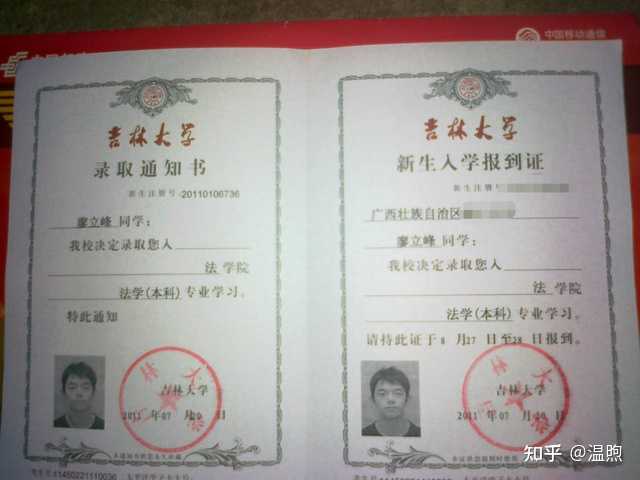 中国移动通信
吉林大学
录取通知书
新生注册号:20110106736
廖立峰 同学:
我校决定录取您入
法 学院
法学(本科) 专业学习。
特此通知
吉林大学
2011 年 07 月 日
吉林大学
新生入学报到证
新生注册号
广西壮族自治区
廖立峰 同学:
我校决定录取您入
法 学院
法学(本科) 专业学习。
请持此证于 8 月 27 日至 28 日报到。
吉林大学
2011 年 07 月 日
知乎 @温煦